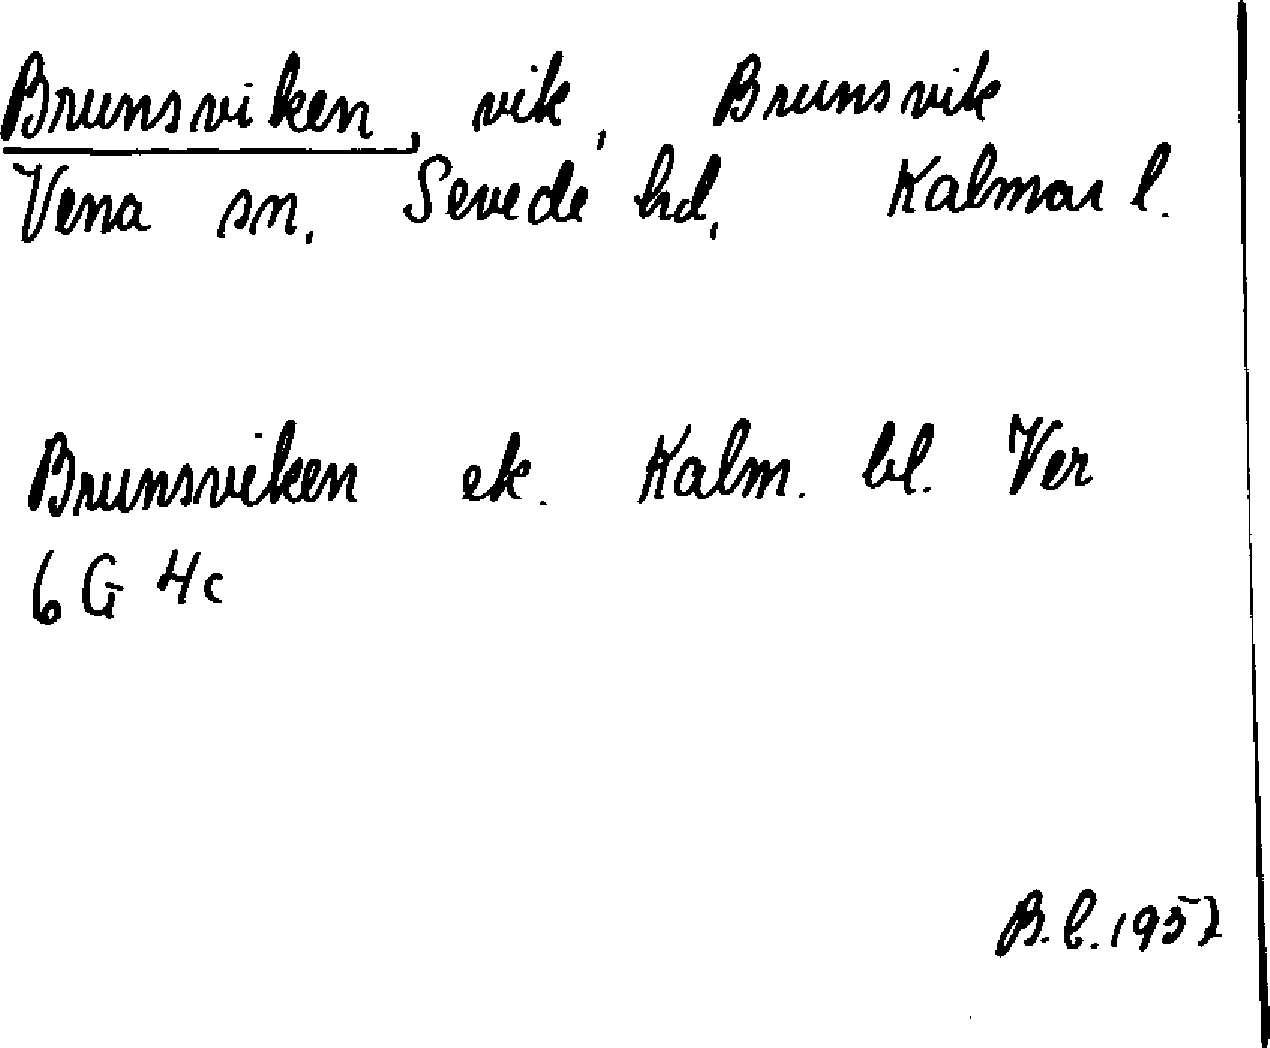 Brunsviken, vik, Brunsvik
Vena sn. Sevede hd, Kalmar l.
Brunsviken ek. Kalm. bl. Ver
6 G 4c
B.l. 1957